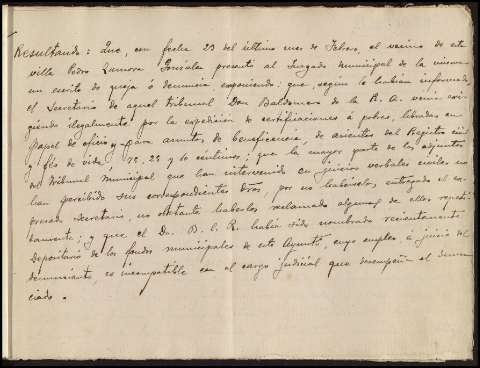 Resultando: Que, con fecha 23 del último mes de Febrero, el vecino de esta
villa Pedro Zamora González presentó al Juzgado Municipal de la misma
un escrito de queja ó denuncia, exponiendo: que, según le habían informado,
el Secretario de aquel Tribunal Don Baldomero de la R. A. venía exi-
giendo ilegalmente por la expedición de certificaciones á pobres, libradas en
papel de oficio y para asuntos de beneficencia, de asientos del Registro civil
y fés de vida, 25 y 40 céntimos; que la mayor parte de los adjuntos
del Tribunal municipal que han intervenido en juicios verbales civiles no
han percibido sus correspondientes dros, por no habérselos entregado el ex-
presado Secretario, no obstante haberlos reclamado algunos de ellos repeti-
damente; y que el Dn. B. l. R. había sido nombrado recientemente
Depositario de los fondos municipales de este Ayuntº, cuyo empleo á juicio del
denunciante, es incompatible con el cargo judicial que desempeña el denun-
ciado.